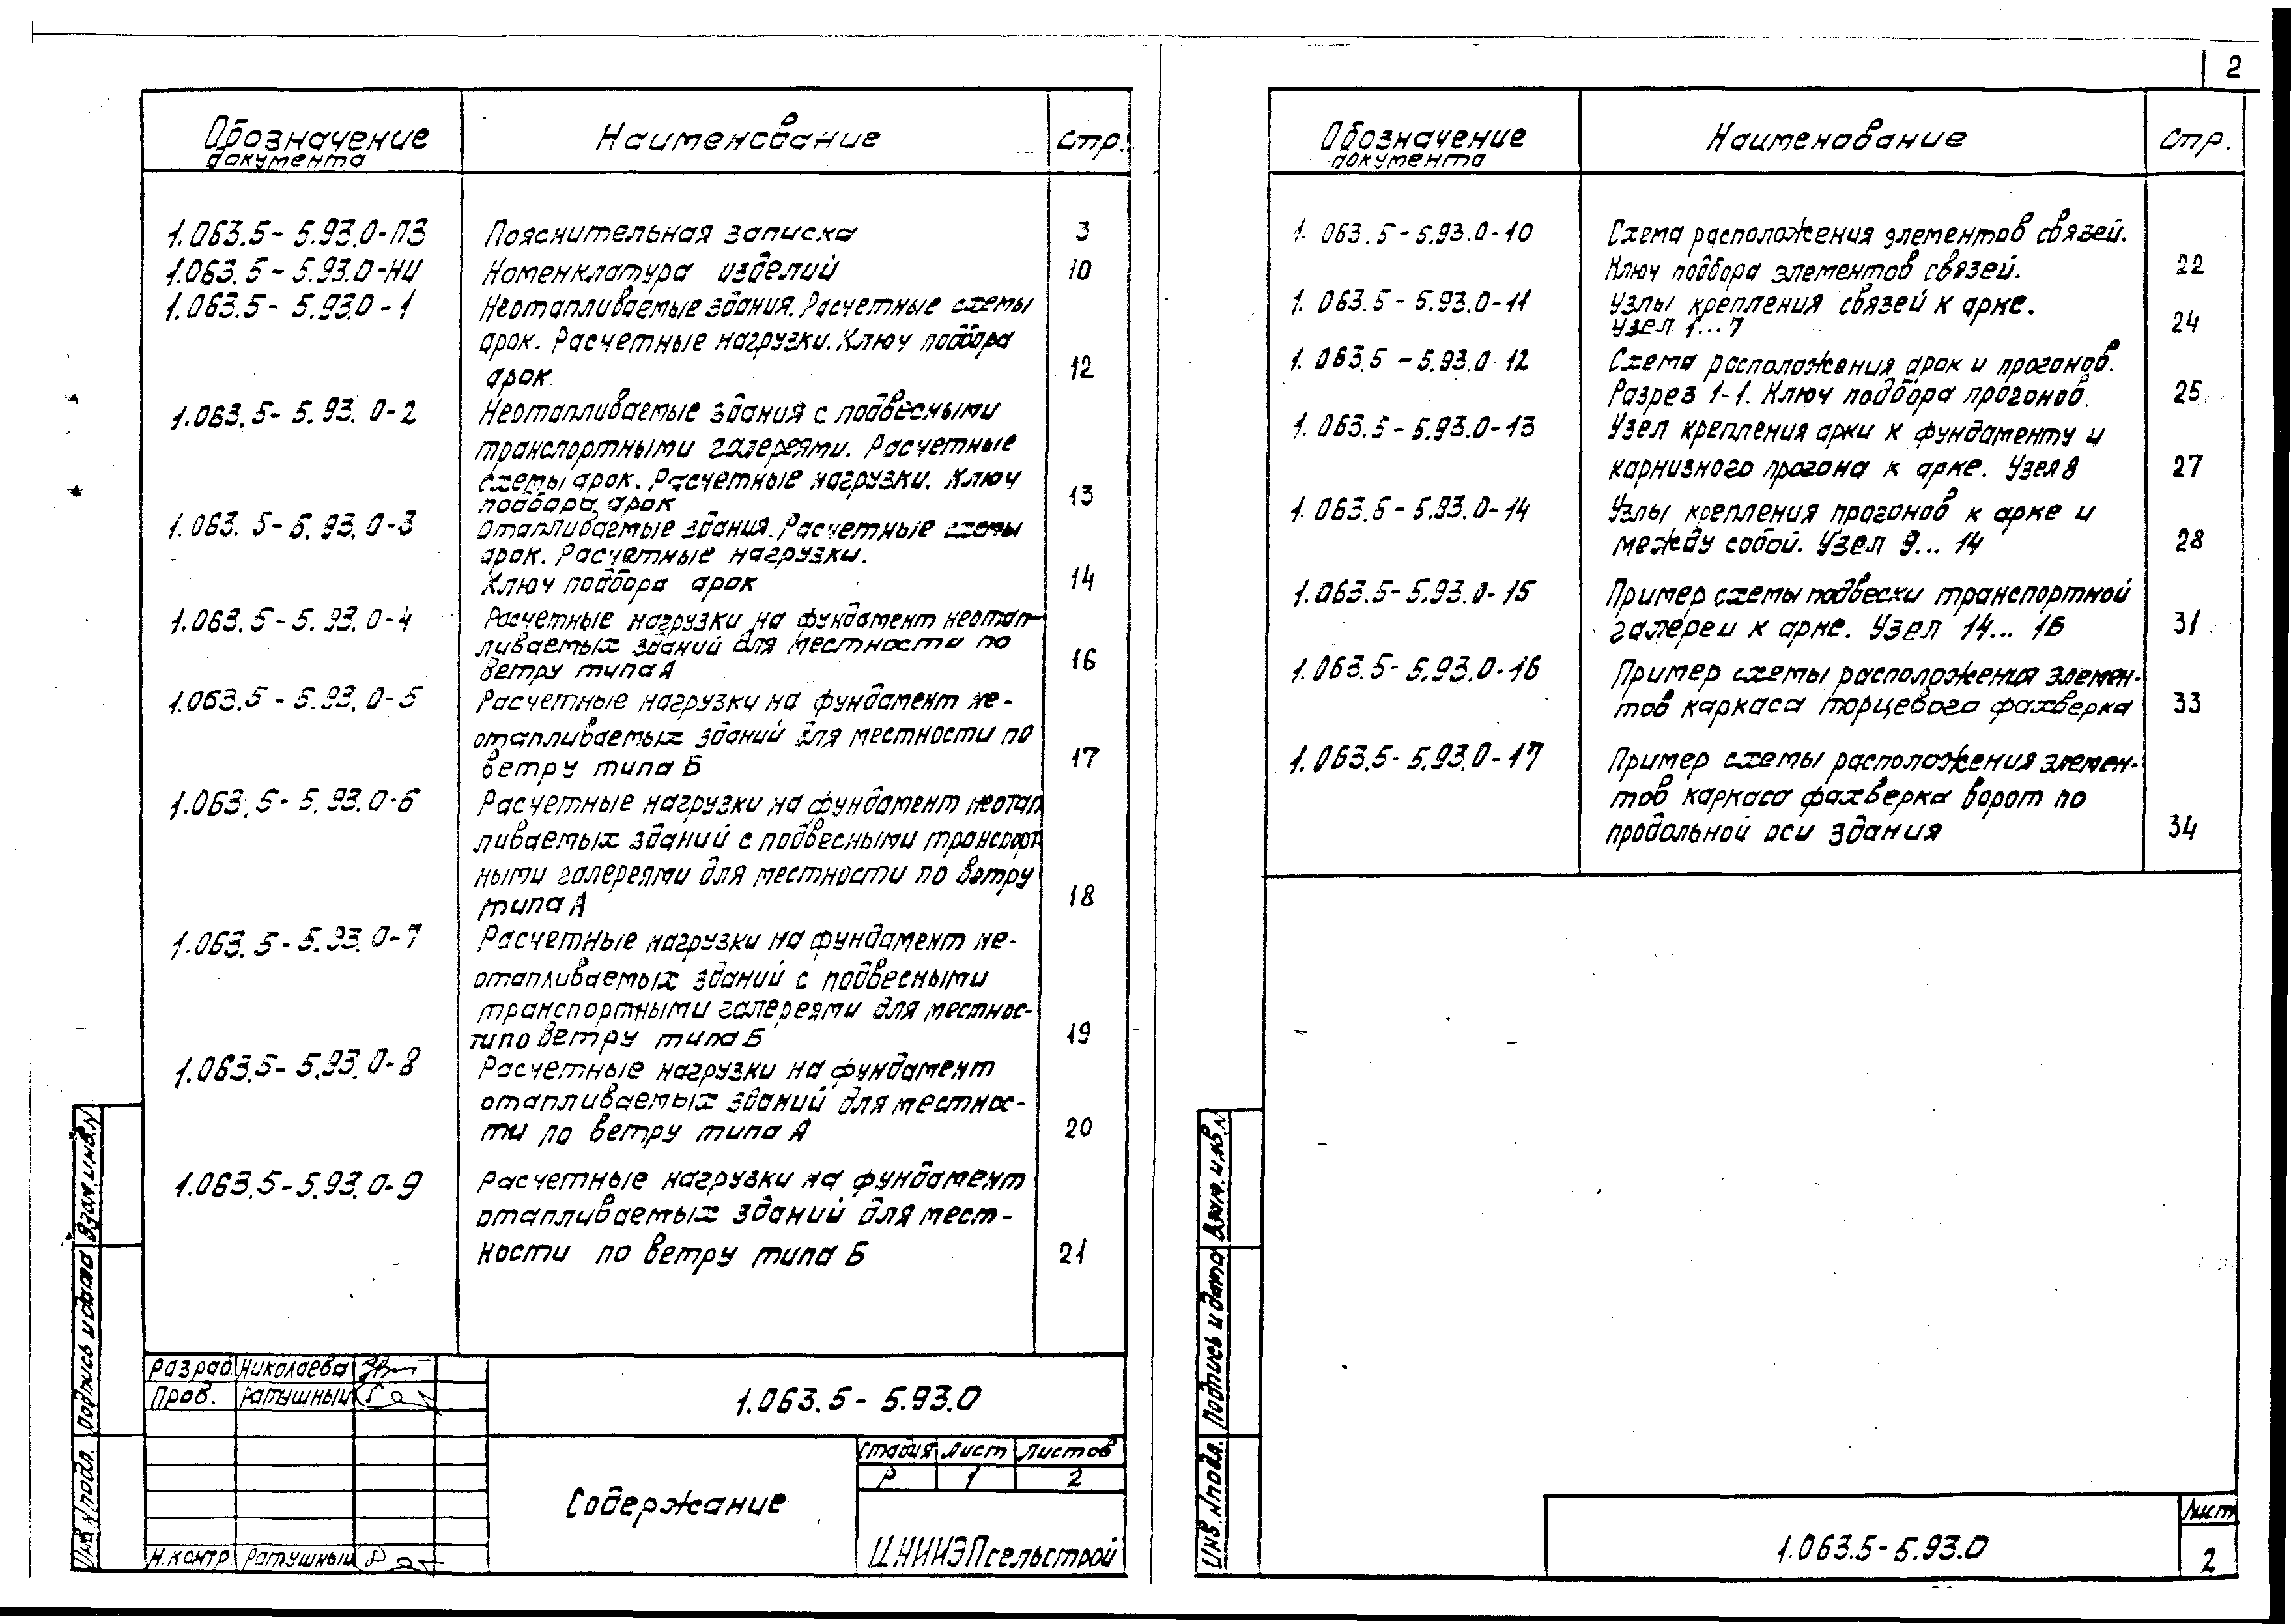 2
Обозначение документа
Наименование
Стр.
1.063.5-5.93.0-ПЗ
Пояснительная записка
3
1.063.5-5.93.0-НИ
Номенклатура изделий
10
1.063.5-5.93.0-1
Неотапливаемые здания. Расчетные схемы
арок. Расчетные нагрузки. Ключ подбора
арок
12
1.063.5-5.93.0-2
Неотапливаемые здания с подвесными
транспортными галереями. Расчетные
схемы арок. Расчетные нагрузки. Ключ
подбора арок
13
1.063.5-5.93.0-3
Отапливаемые здания. Расчетные схемы
арок. Расчетные нагрузки.
Ключ подбора арок
14
1.063.5-5.93.0-4
Расчетные нагрузки на фундамент неотап-
ливаемых зданий для местности по
ветру типа А
16
1.063.5-5.93.0-5
Расчетные нагрузки на фундамент не-
отапливаемых зданий для местности по
ветру типа Б
17
1.063.5-5.93.0-6
Расчетные нагрузки на фундамент неотап
ливаемых зданий с подвесными транспорт
ными галереями для местности по ветру
типа А
18
1.063.5-5.93.0-7
Расчетные нагрузки на фундамент не-
отапливаемых зданий с подвесными
транспортными галереями для местнос-
ти по ветру типа Б
19
1.063.5-5.93.0-8
Расчетные нагрузки на фундамент
отапливаемых зданий для местнос-
ти по ветру типа А
20
1.063.5-5.93.0-9
Расчетные нагрузки на фундамент
отапливаемых зданий для мест-
ности по ветру типа Б
21
Разраб Николаева
Пров. Ратушный
Н.контр. Ратушный
1.063.5-5.93.0
Содержание
Стадия Лист Листов
Р 1 2
ЦНИИЭПсельстрой
Взам.инв.N
Подпись и дата
Инв.N подл.
Обозначение документа
Наименование
Стр.
1.063.5-5.93.0-10
Схема расположения элементов связей.
Ключ подбора элементов связей.
22
1.063.5-5.93.0-11
Узлы крепления связей к арке.
Узел 1...7
24
1.063.5-5.93.0-12
Схема расположения арок и прогонов.
Разрез 1-1. Ключ подбора прогонов.
25
1.063.5-5.93.0-13
Узел крепления арки к фундаменту и
карнизного прогона к арке. Узел 8
27
1.063.5-5.93.0-14
Узлы крепления прогонов к арке и
между собой. Узел 9...14
28
1.063.5-5.93.0-15
Пример схемы подвески транспортной
галереи к арке. Узел 14...16
31
1.063.5-5.93.0-16
Пример схемы расположения элемен-
тов каркаса торцевого фахверка
33
1.063.5-5.93.0-17
Пример схемы расположения элемен-
тов каркаса фахверка ворот по
продольной оси здания
34
Взам.инв.N
Подпись и дата
Инв.N подл.
1.063.5-5.93.0
Лист
2